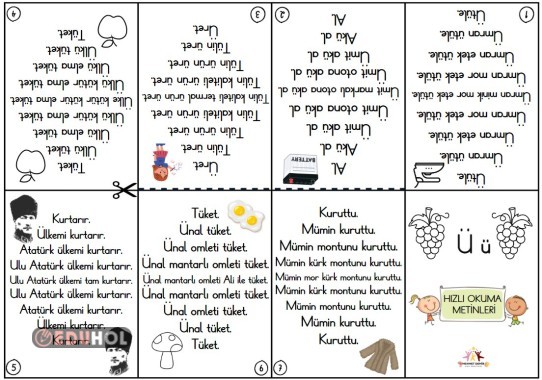 Ü ü
HIZLI OKUMA
METİNLERİ
1
Ütüle.
Ümran ütüle.
Ümran etek ütüle.
Ümran mor etek ütüle.
Ümran minik mor etek ütüle.
Ümran mor etek ütüle.
Ümran etek ütüle.
Ümran ütüle.
Ütüle.
2
AL
Akü al.
Ümit akü al.
Ümit otona akü al.
Ümit markalı otona akü al.
Ümit otona akü al.
Ümit akü al.
Akü al.
AL
BATTERY
3
Üret.
Tülin üret.
Tülin ürün üret.
Tülin kaliteli ürün üret.
Tülin kaliteli ürün üret.
Tülin kaliteli ürün üret.
Tülin ürün üret.
Tülin üret.
Üret.
4
Tüket.
Ülkü tüket.
Ülkü elma tüket.
Ülkü kütür elma tüket.
Ülkü kütür kütür elma tüket.
Ülkü kütür elma tüket.
Ülkü elma tüket.
Ülkü tüket.
Tüket.
Kurtarır.
Ülkemi kurtarır.
Atatürk ülkemi kurtarır.
Ulu Atatürk ülkemi kurtarır.
Ulu Atatürk ülkemi tam kurtarır.
Ulu Atatürk ülkemi kurtarır.
Atatürk ülkemi kurtarır.
Ülkemi kurtarır.
Kurtarır.
EĞİTİMHOL
5
Tüket.
Ünal tüket.
Ünal omleti tüket.
Ünal mantarlı omleti tüket.
Ünal mantarlı omleti Ali ile tüket.
Ünal mantarlı omleti tüket.
Ünal omleti tüket.
Ünal tüket.
Tüket.
6
Kuruttu.
Mümin kuruttu.
Mümin montunu kuruttu.
Mümin kürk montunu kuruttu.
Mümin mor kürk montunu kuruttu.
Mümin kürk montunu kuruttu.
Mümin montunu kuruttu.
Mümin kuruttu.
Kuruttu.
7